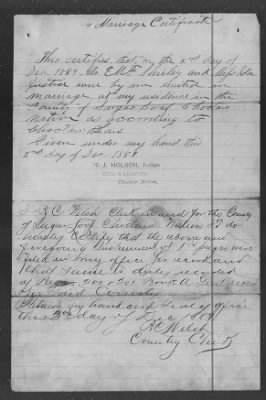 Marriage Certificate
This certifies that on the 2nd day of
Dec 1889 Mr. E.M. and Miss
Justice were by me united in
marriage at my residence in the
County of Sugar Loaf Choctaw
Nation as according to
Choctaw laws
Given under my hand this
2nd day of Dec 1889
N. J. HOLSON, Judge
SUGAR LOAF CO.
Choctaw Nation.
I R.C. Welch Clerk in and for the County
of Sugar Loaf Choctaw Nation I do
hereby certify that the above and
foregoing instrument of was
filed in my office for record and
that same is duly recorded
of Pages 200 & 201 Book A
said County
my hand and seal of office
this day of Dec 1889
R C Welch
County Clerk